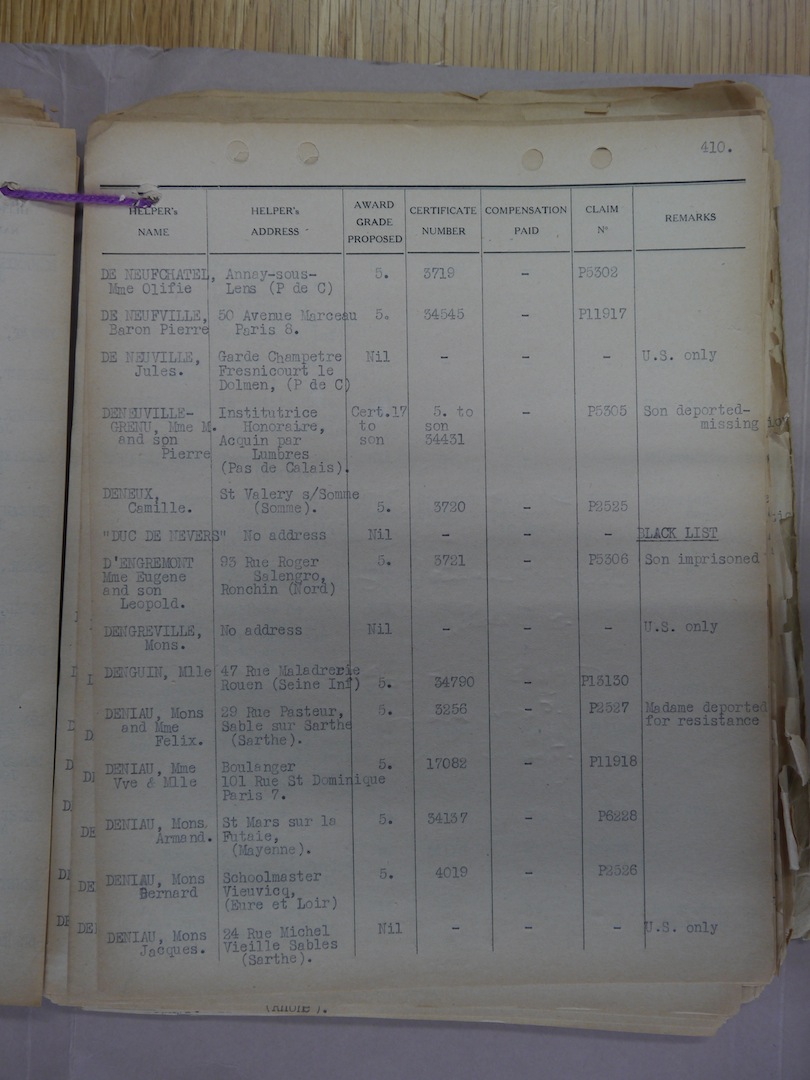 410.
HELPER's NAME | HELPER's ADDRESS | AWARD GRADE PROPOSED | CERTIFICATE NUMBER | COMPENSATION PAID | CLAIM N° | REMARKS
DE NEUFCHATEL, Annay-sous- 5. 3719 - P5302
Mme Olifie Lens (P de C)
DE NEUFVILLE, 50 Avenue Marceau 5. 34545 - P11917
Baron Pierre Paris 8.
DE NEUVILLE, Garde Champetre Nil - - - U.S. only
Jules. Fresnicourt le
Dolmen, (P de C)
DENEUVILLE- Institutrice Cert.17 5. to - P5305 Son deported-
GRENU, Mme M. Honoraire, to son missing
and son Acquin par son 34431
Pierre Lumbres
(Pas de Calais).
DENEUX, St Valery s/Somme
Camille. (Somme). 5. 3720 - P2525
"DUC DE NEVERS" No address Nil - - - BLACK LIST
D'ENGREMONT 93 Rue Roger 5. 3721 - P5306 Son imprisoned
Mme Eugene Salengro,
and son Ronchin (Nord)
Leopold.
DENGREVILLE, No address Nil - - - U.S. only
Mons.
DENGUIN, Mlle 47 Rue Maladrerie
Rouen (Seine Inf) 5. 34790 - P13130
DENIAU, Mons 29 Rue Pasteur, 5. 3256 - P2527 Madame deported
and Mme Sable sur Sarthe for resistance
Felix. (Sarthe).
DENIAU, Mme Boulanger 5. 17082 - P11918
Vve & Mlle 101 Rue St Dominique
Paris 7.
DENIAU, Mons. St Mars sur la 5. 34137 - P6228
Armand. Futaie,
(Mayenne).
DENIAU, Mons Schoolmaster 5. 4019 - P2526
Bernard Vieuvicq,
(Eure et Loir)
DENIAU, Mons 24 Rue Michel Nil - - - U.S. only
Jacques. Vieille Sables
(Sarthe).